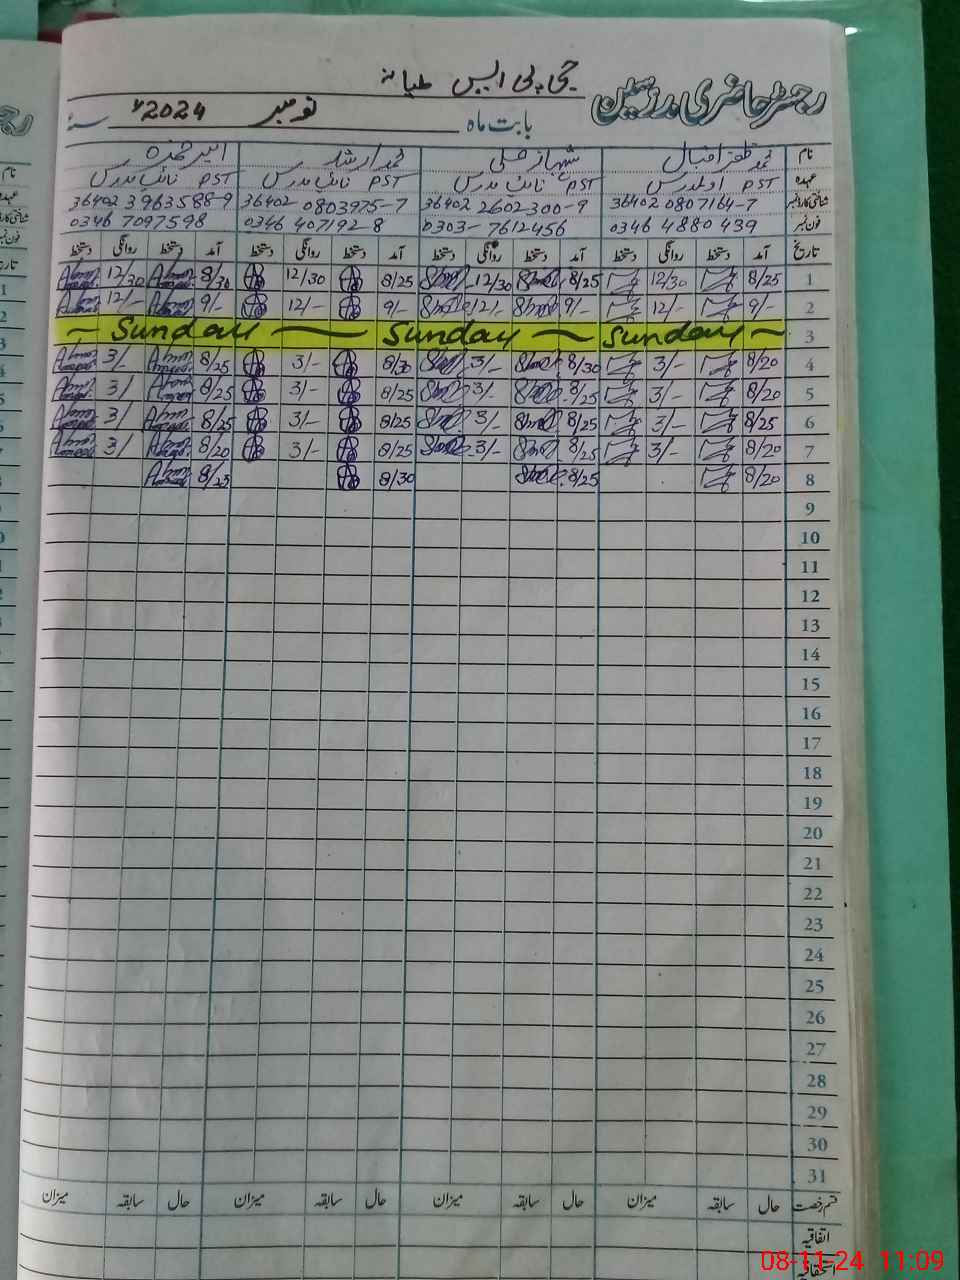 جی پی ایس
رجسٹر حاضری مدرسین
بابت ماہ نومبر 2024ء سنہ
نام محمد ظفر اقبال شہباز علی محمد ارشد امیر حمزہ
عہدہ PST اول مدرس PST نائب مدرس PST نائب مدرس PST نائب مدرس
شناختی کارڈ نمبر 36402 0807164-7 36402 2602300-9 36402 0803975-7 36402 3963588-9
فون نمبر 0346 4880439 0303-7612456 0346 4071928 0346 7097598
تاریخ آمد دستخط روانگی دستخط آمد دستخط روانگی دستخط آمد دستخط روانگی دستخط آمد دستخط روانگی دستخط
1 8/25 12/30 8/25 12/30 8/25 12/30 8/30 12/30
2 9/- 12/- 9/- 12/- 9/- 12/- 9/- 12/-
3 ~ Sunday ~ Sunday ~ Sunday ~
4 8/20 3/- 8/30 3/- 8/30 3/- 8/25 3/-
5 8/20 3/- 8/25 3/- 8/25 3/- 8/25 3/
6 8/25 3/- 8/25 3/- 8/25 3/- 8/25 3/
7 8/20 3/- 8/25 3/- 8/25 3/- 8/20 3/
8 8/20 8/25 8/30 8/25
9
10
11
12
13
14
15
16
17
18
19
20
21
22
23
24
25
26
27
28
29
30
31
قسم رخصت حال سابقہ میزان حال سابقہ میزان حال سابقہ میزان حال سابقہ میزان
اتفاقیہ
استحقاقیہ
08-11-24 11:09